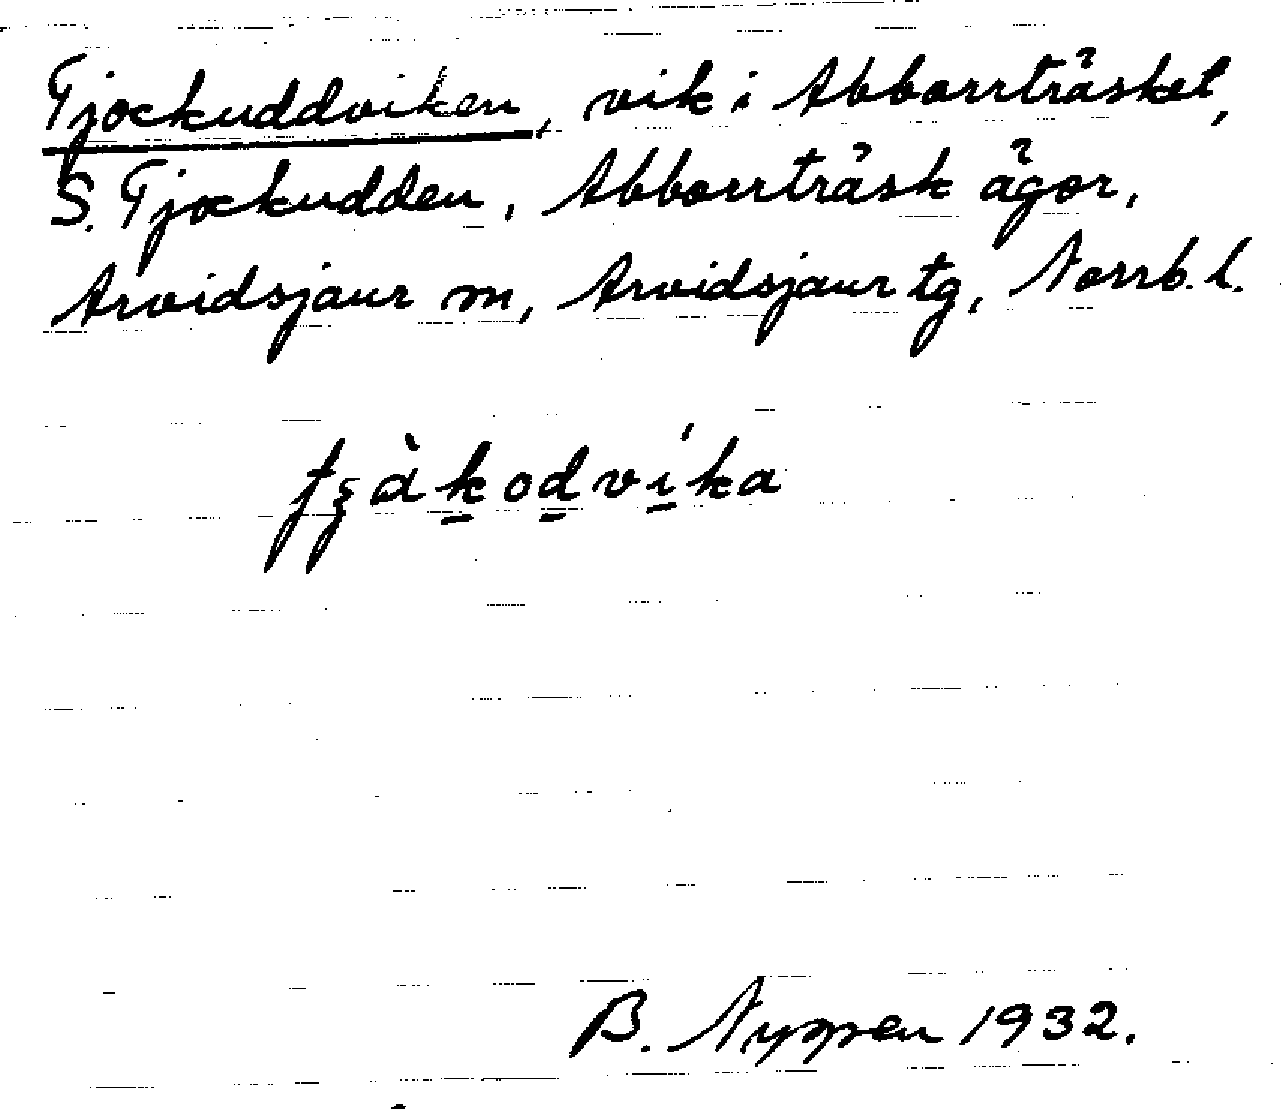 Tjockuddviken, vik i Abborrträsket,
S. Tjockudden, Abborrträsk ägor,
Arvidsjaur sn, Arvidsjaur tg, Norrb. l.
B. Nyppen 1932.